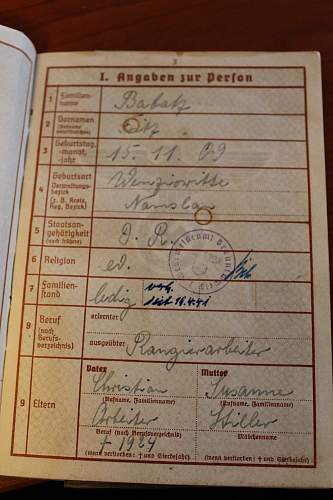 3
I. Angaben zur Person
1 Familien-
name Babatz
2 Vornamen
(Rufname
unterstreichen)
3 Geburtstag,
-monat,
-jahr 15. 11. 09
4 Geburtsort
Verwaltungs-
bezirk
(z. B. Kreis,
Reg. Bezirk)
Namslau
5 Staatsan-
gehörigkeit
(auch frühere) D. R.
6 Religion ev.
7 Familien-
stand ledig verh.
seit 11.4.41
8 Beruf
(nach
Berufs-
verzeichnis)
erlernter
ausgeübter Rangierarbeiter
9 Eltern
Vater
Christian
(Rufname, Familienname)
Arbeiter
Beruf (nach Berufsverzeichnis)
† 1924
(wenn verstorben: † und Sterbejahr)
Mutter
Susanne
(Rufname, Familienname)
Stiller
Mädchenname
(wenn verstorben: † und Sterbejahr)